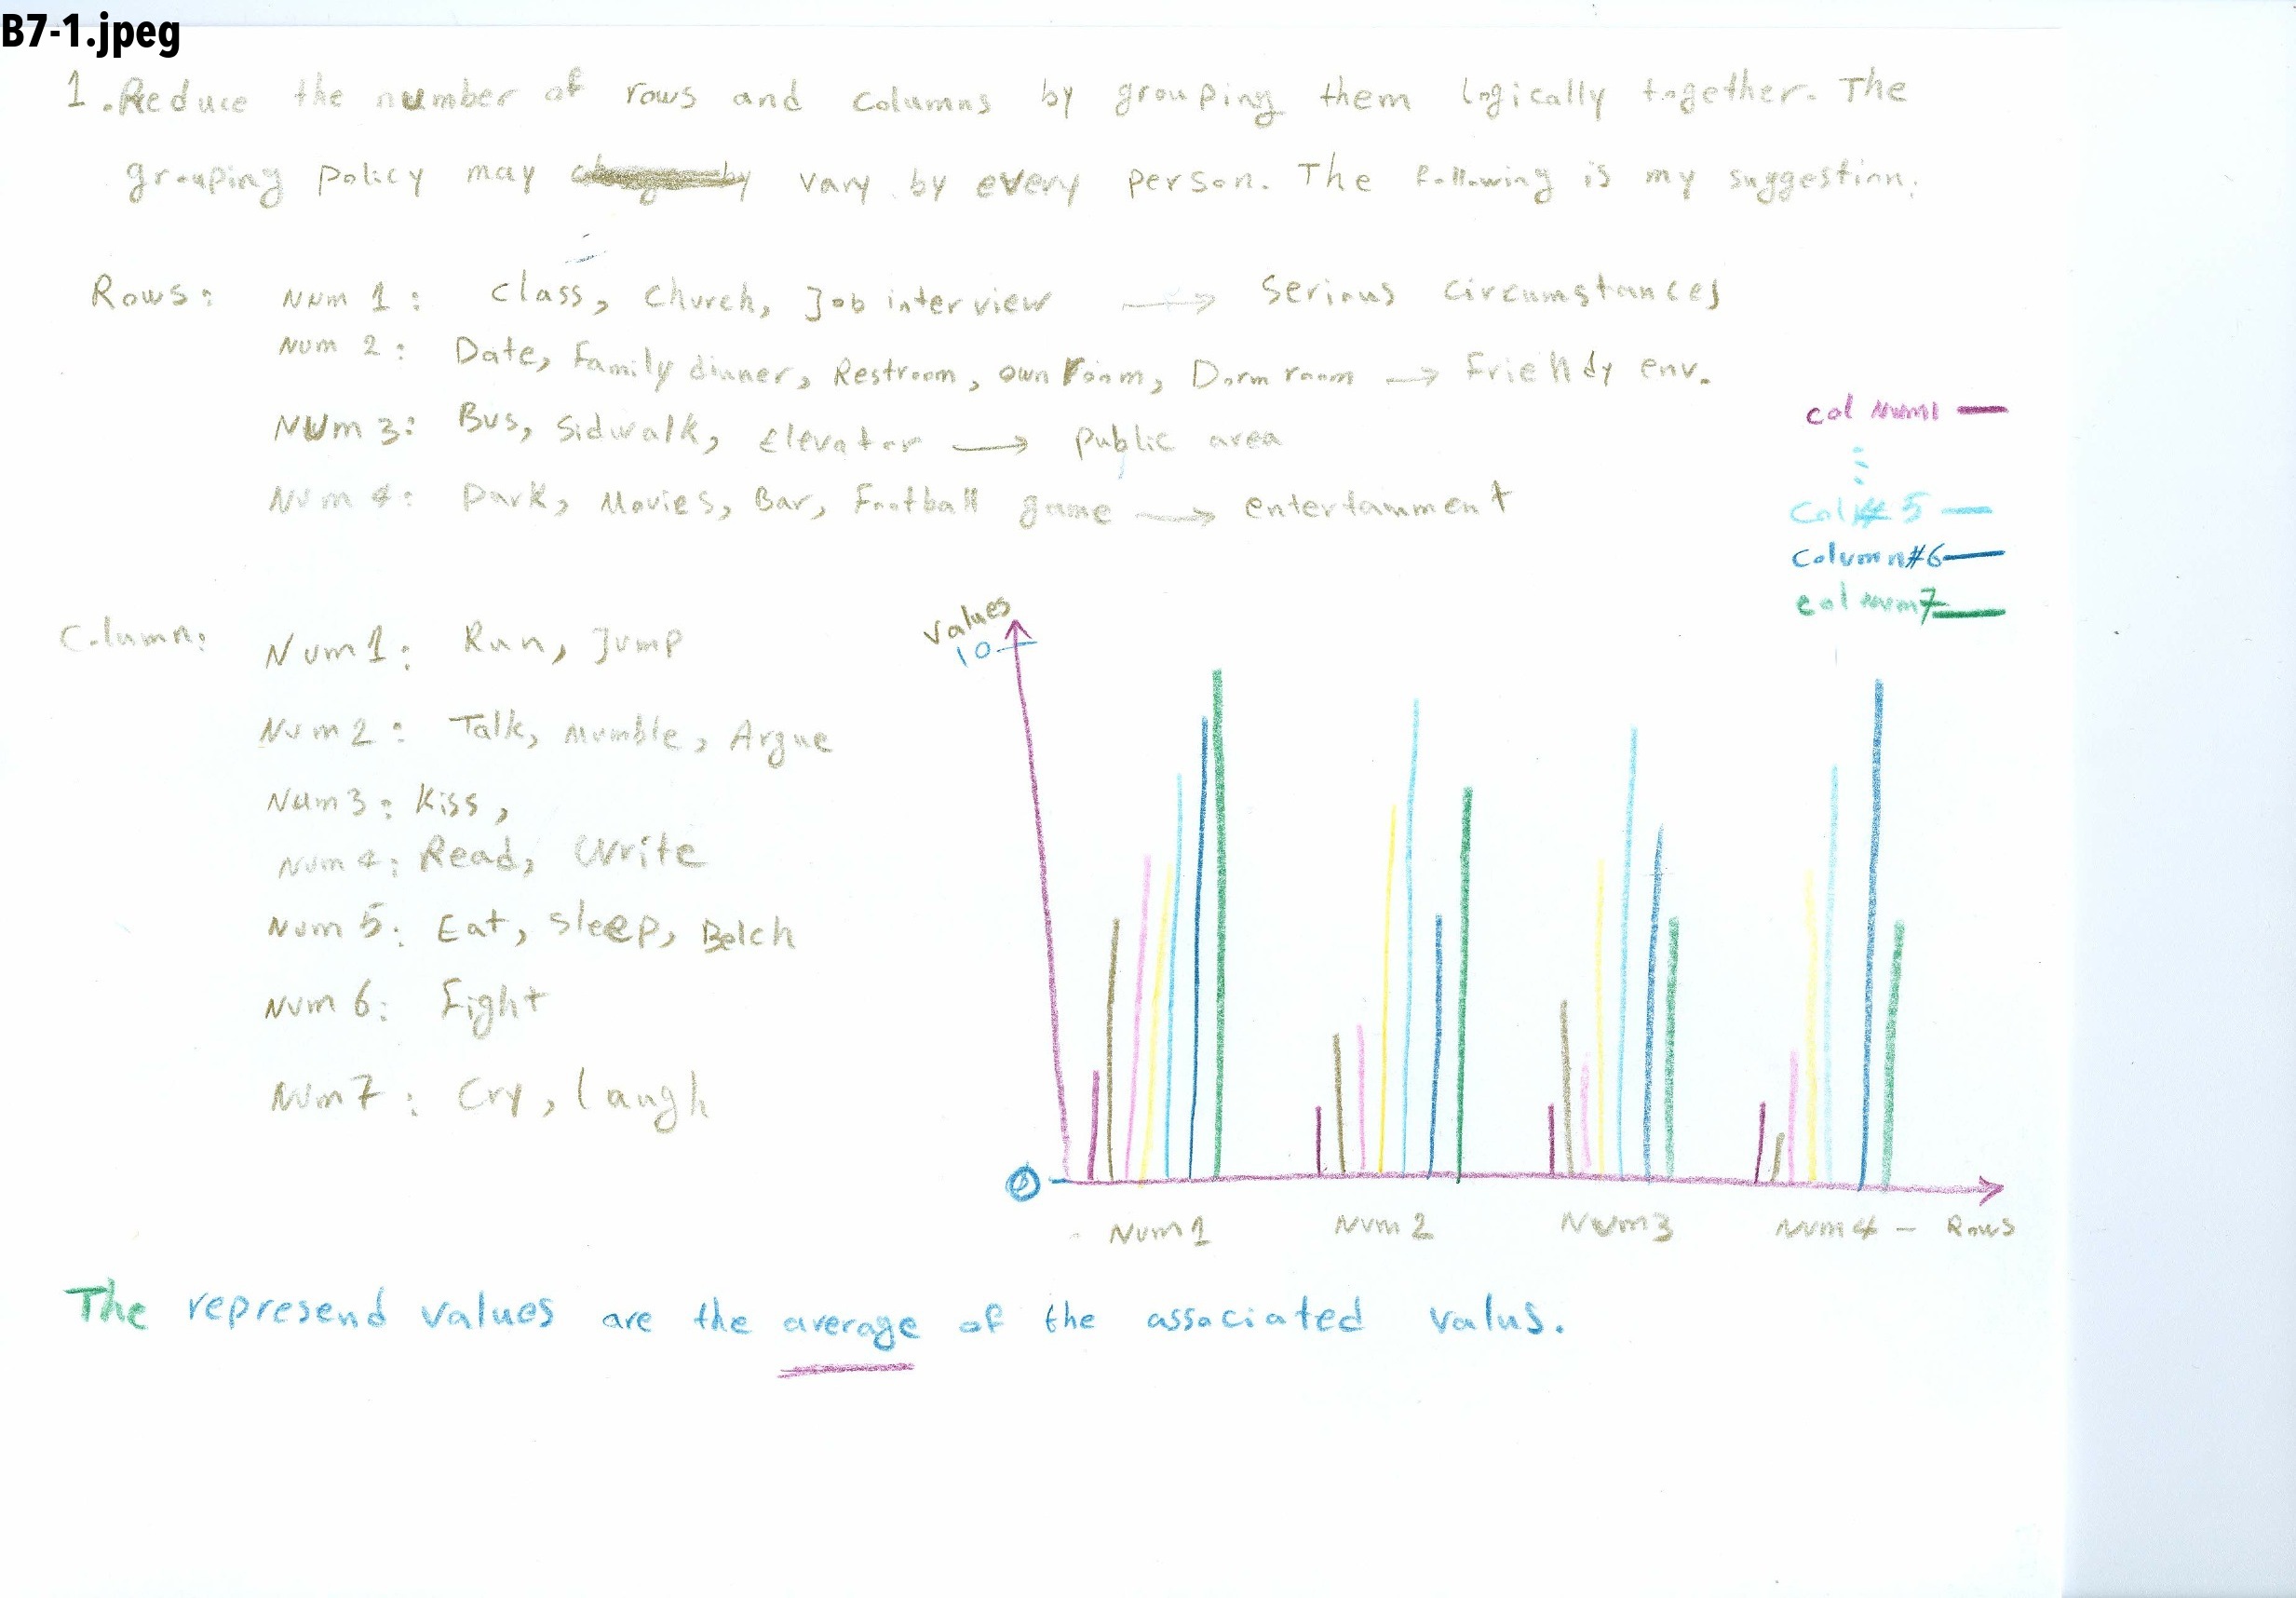 B7-1.jpeg
1. Reduce the number of rows and columns by grouping them logically together. The
grouping policy may vary by every person. The following is my suggestion:
Rows: Num 1: class, Church, Job interview → Serious circumstances
Num 2: Date, Family dinner, Restroom, own room, Dorm room → Friendy env.
Num 3: Bus, Sidwalk, Elevator → public area
Num 4: Park, Movies, Bar, Football game → entertainment
col Num1
col# 5
column#6
col num7
Column: Num1: Run, Jump
Num2: Talk, Mumble, Argue
Num3: Kiss,
Num4: Read, Write
Num 5: Eat, sleep, Belch
Num 6: Fight
Num7: Cry, laugh
values
10
0
Num1 Num2 Num3 Num4 - Rows
The represend values are the average of the associated valus.